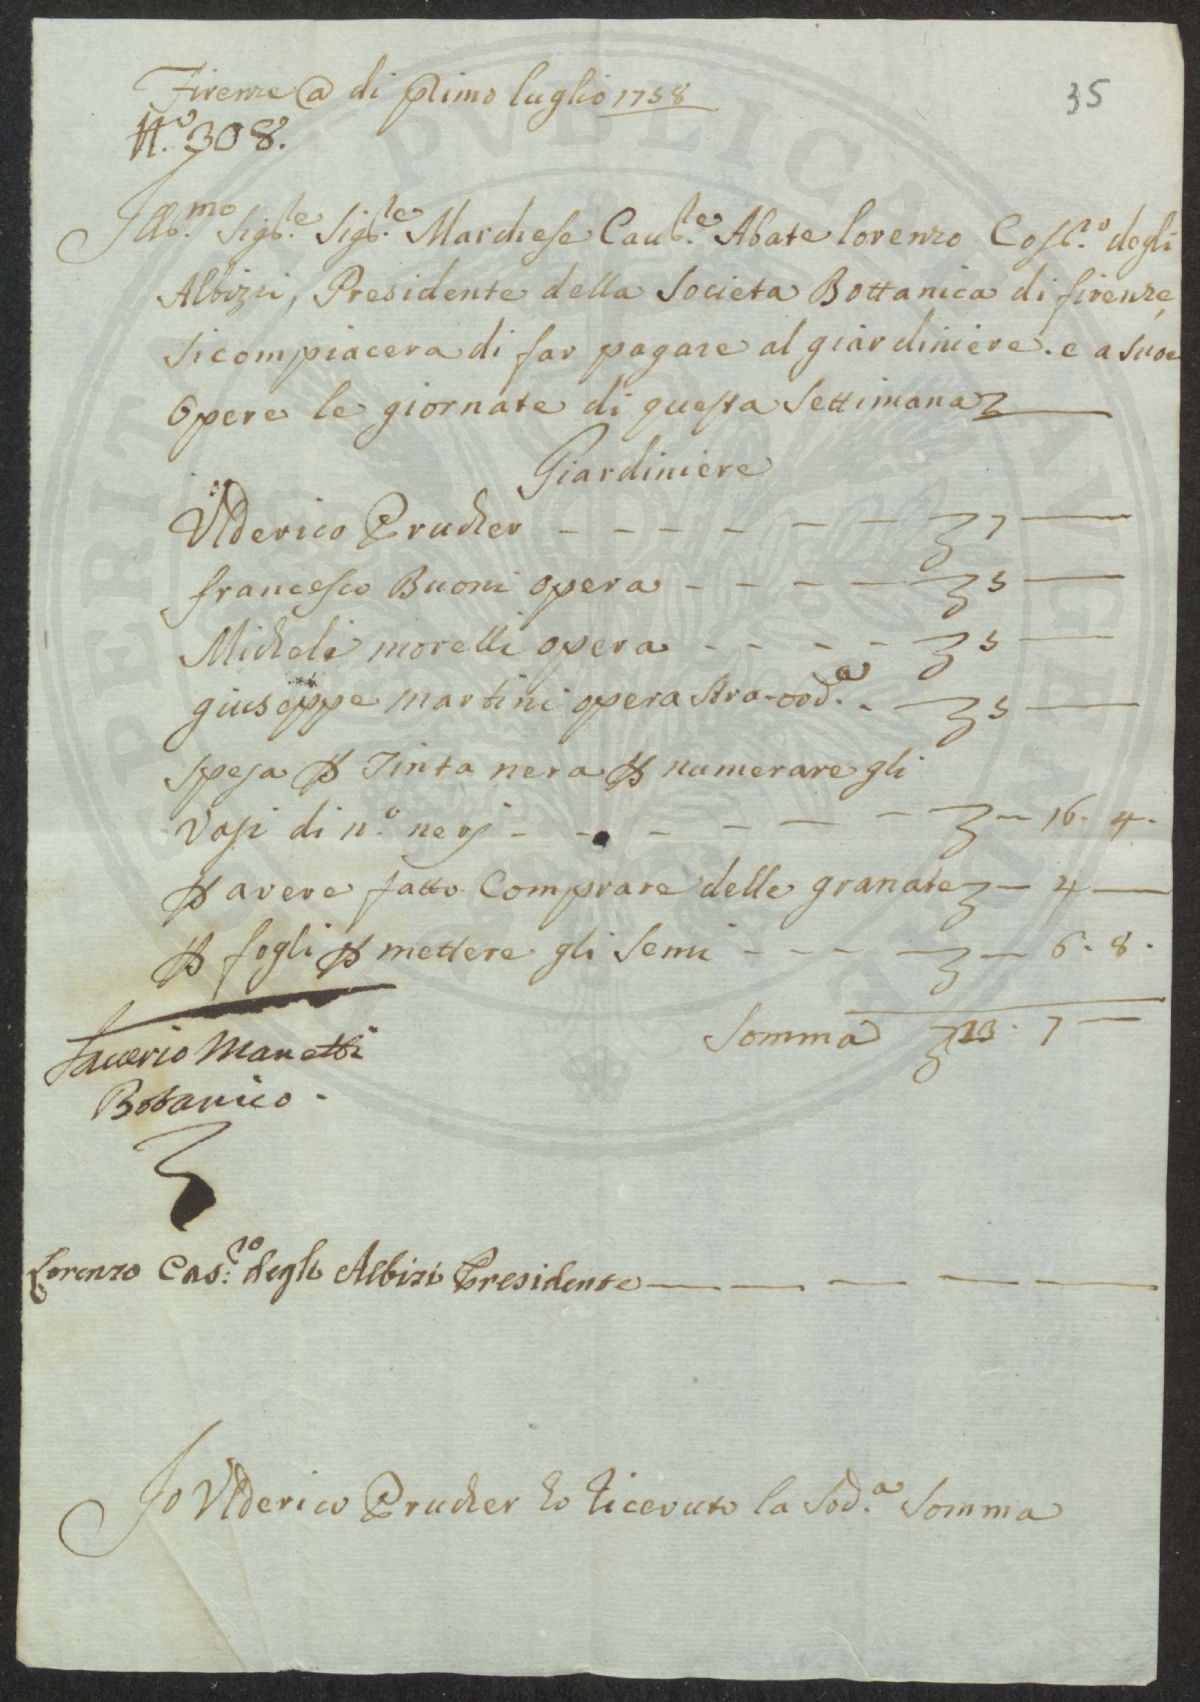 35
Firenze @ di primo luglio 1758
N.º 308.
Ill.mo Sig.re Sig.re Marchese Cau.re Abate lorenzo Cos.no degli
Albizzi, Presidente della Societa Bottanica di firenze,
si compiacera di far pagare al giardiniere. e a suoe
Opere le giornate di questa Settimana
Giardiniere
Vlderico Prucher - - - - - - 7 —
francesco Buoni opera - - - - 5 —
Micheli morelli opera - - - - 5 —
giuseppe martini opera stra-ord.a - 5 —
spesa p tinta nera p numerare gli
Vasi di n.º nerj - - - - - - - 16. 4.
p avere fatto Comprare delle granate — 4 —
p fogli p mettere gli Semi - - - - 6. 8.
Somma 23. 7 —
Saverio Manetti
Bottanico.
Lorenzo Cas.no degli Albizi Presidente — — — — —
Jo Vlderico Prucher ho ricevuto la Sod.a Somma
PVBLICAE
PROSPERITATI
AVGENDAE